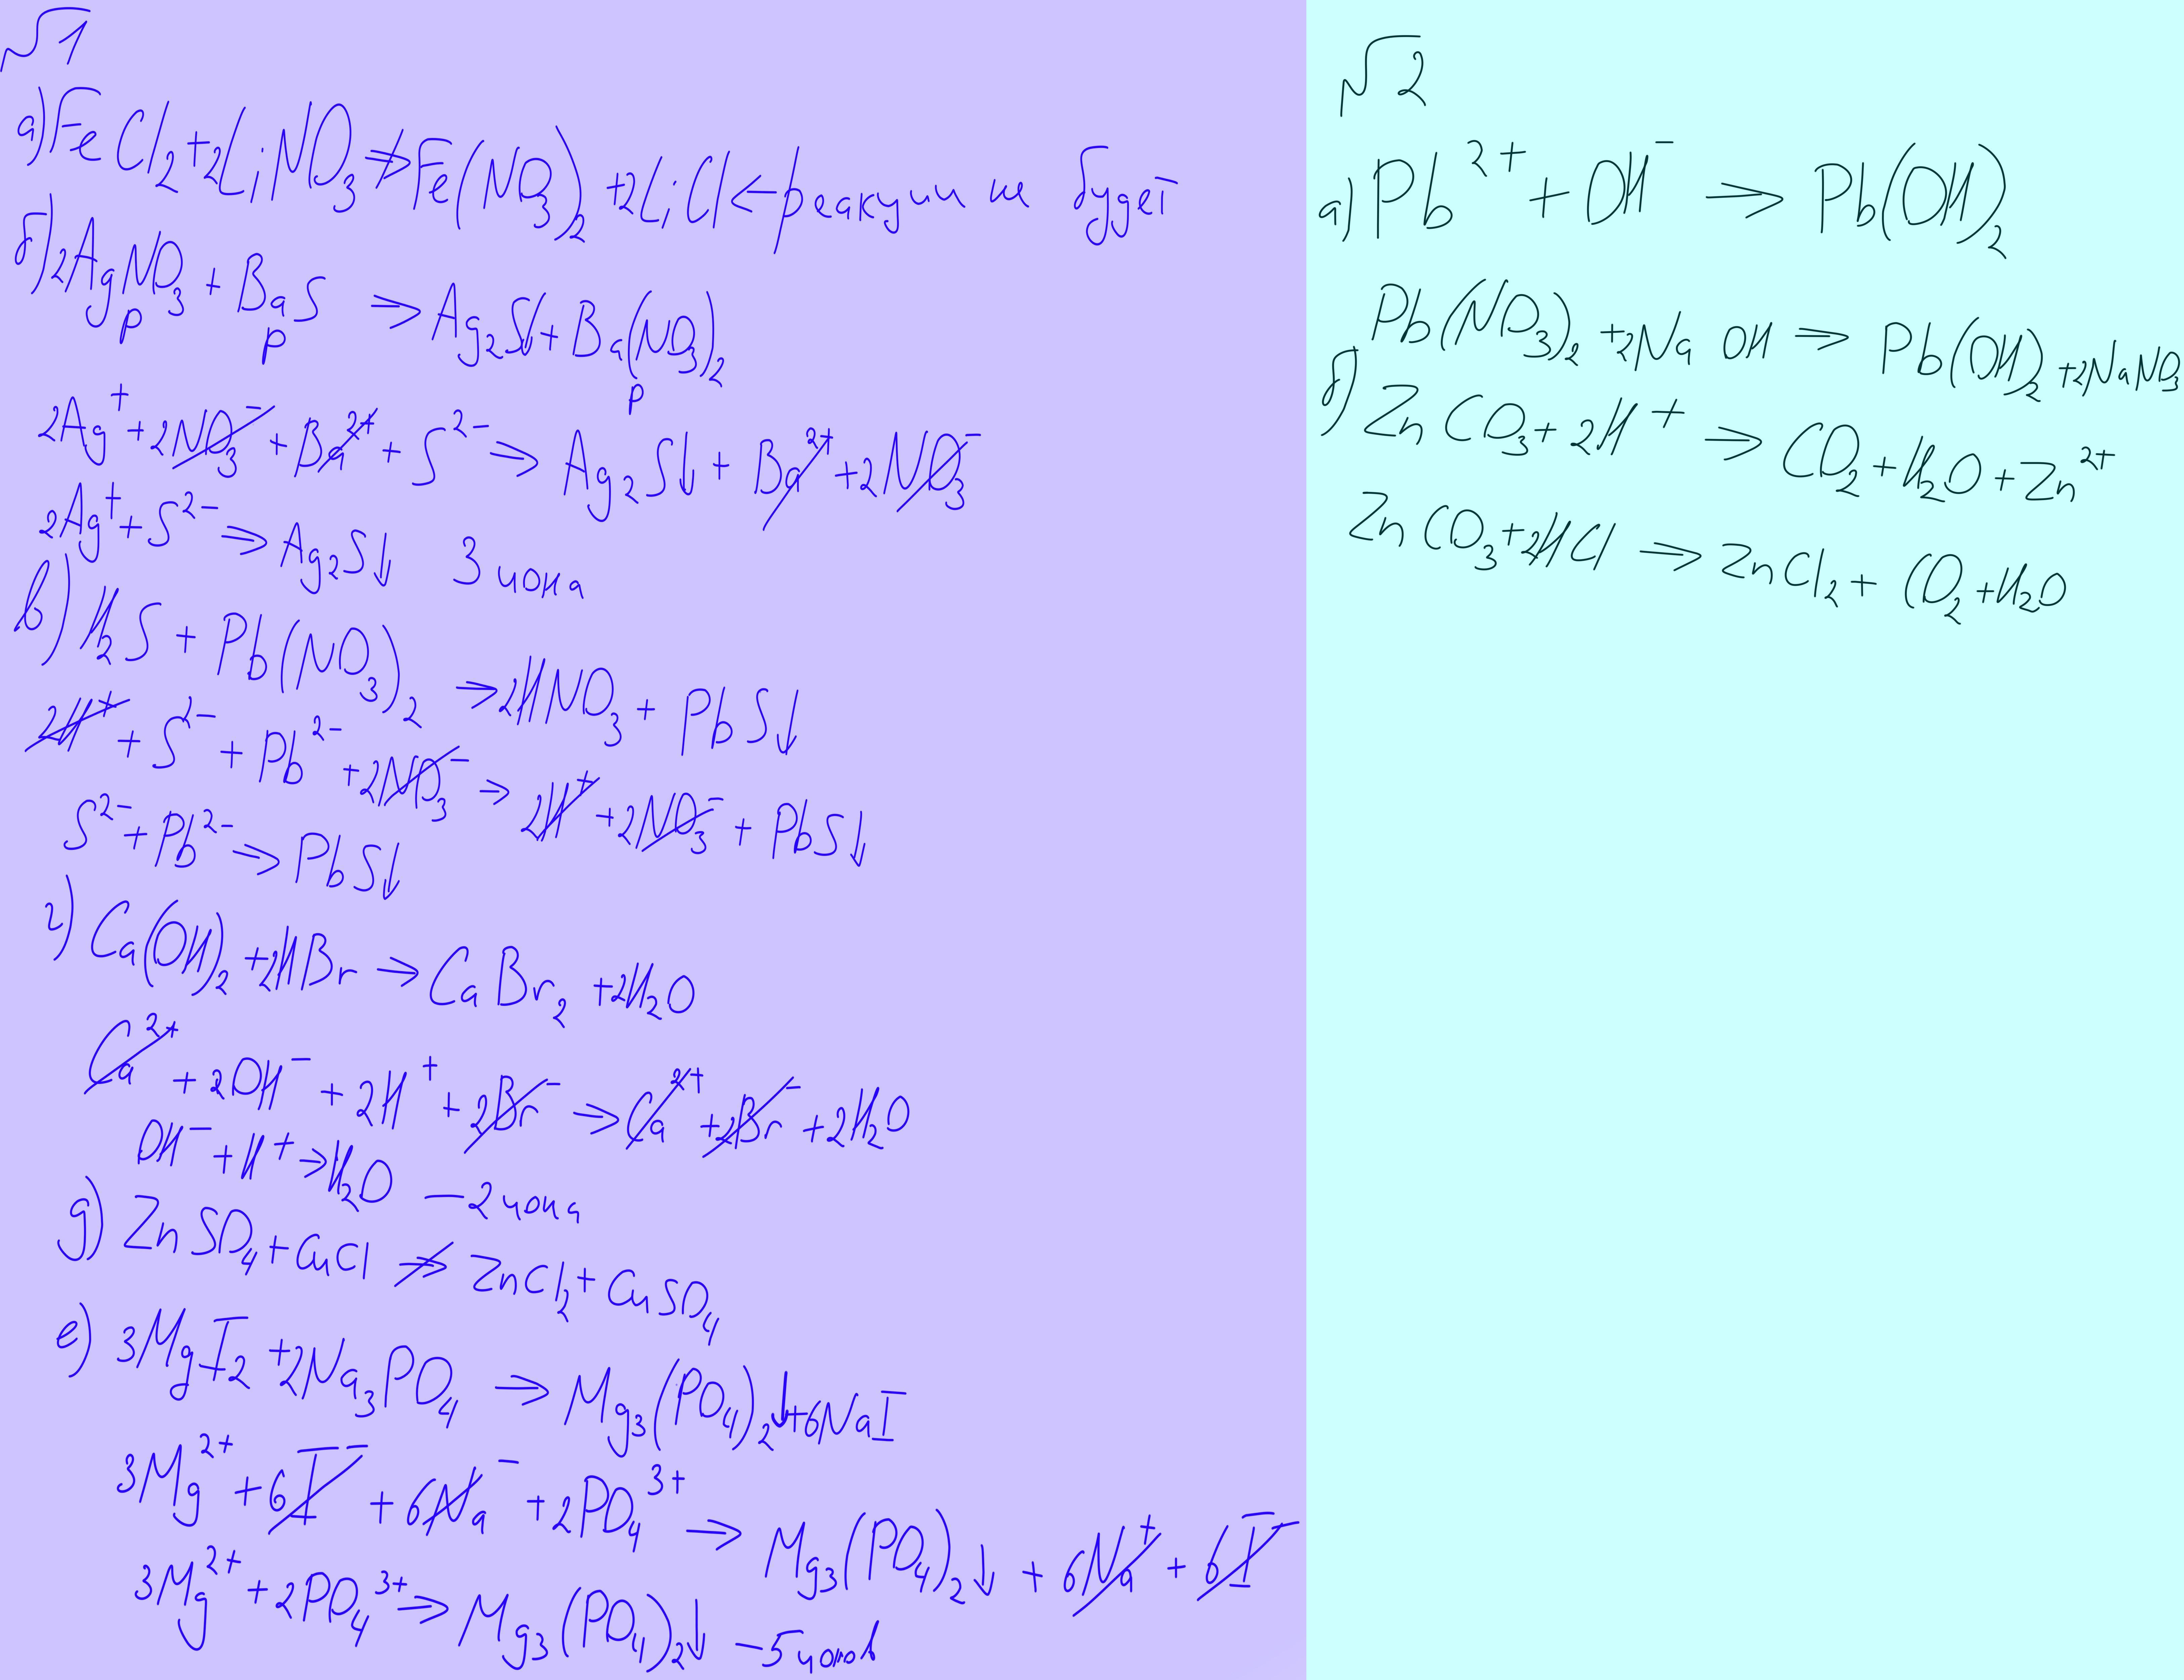 √1
а) FeCl₂ + 2LiNO₃ ⇏ Fe(NO₃)₂ + 2LiCl ← реакции не будет
б) 2AgNO₃ + BaS ⇒ Ag₂S↓ + Ba(NO₃)₂
р р р
2Ag⁺ + 2NO₃⁻ + Ba²⁺ + S²⁻ ⇒ Ag₂S↓ + Ba²⁺ + 2NO₃⁻
2Ag⁺ + S²⁻ ⇒ Ag₂S↓ 3 иона
в) H₂S + Pb(NO₃)₂ ⇒ 2HNO₃ + PbS↓
2H⁺ + S²⁻ + Pb²⁻ + 2NO₃⁻ ⇒ 2H⁺ + 2NO₃⁻ + PbS↓
S²⁻ + Pb²⁻ ⇒ PbS↓
г) Ca(OH)₂ + 2HBr → CaBr₂ + 2H₂O
Ca²⁺ + 2OH⁻ + 2H⁺ + 2Br⁻ ⇒ Ca²⁺ + 2Br⁻ + 2H₂O
OH⁻ + H⁺ ⇒ H₂O — 2 иона
д) ZnSO₄ + CuCl ⇏ ZnCl₂ + CuSO₄
е) 3MgI₂ + 2Na₃PO₄ ⇒ Mg₃(PO₄)₂↓ + 6NaI
3Mg²⁺ + 6I⁻ + 6Na⁻ + 2PO₄³⁺ ⇒ Mg₃(PO₄)₂↓ + 6Na⁺ + 6I⁻
3Mg²⁺ + 2PO₄³⁺ ⇒ Mg₃(PO₄)₂↓ — 5 ионов
√2
а) Pb²⁺ + OH⁻ ⇒ Pb(OH)₂
Pb(NO₃)₂ + 2NaOH ⇒ Pb(OH)₂ + 2NaNO₃
б) ZnCO₃ + 2H⁺ ⇒ CO₂ + H₂O + Zn²⁺
ZnCO₃ + 2HCl ⇒ ZnCl₂ + CO₂ + H₂O